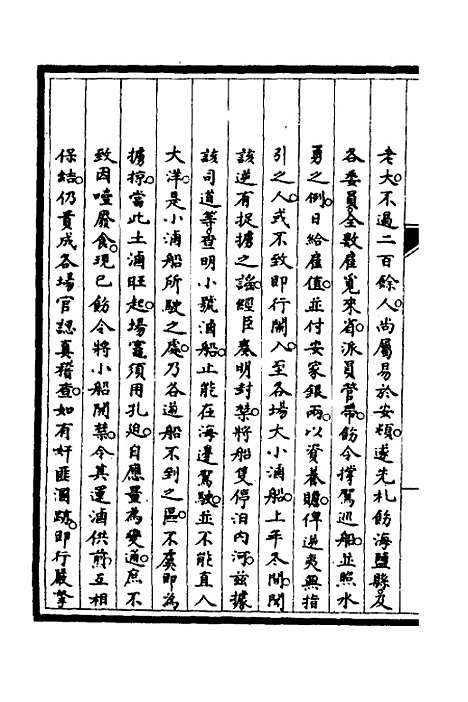 老大不過二百餘人尚屬易於安頓遂先札飭海鹽縣及
各委員全數雇覓來省派員管帶飭令撐駕巡船並照水
勇之例日給雇值並付安家銀兩以資養贍俾逆夷無指
引之人或不致即行闌入至各場大小滷船上年冬間聞
該逆有捉擄之謠經臣奏明封禁將船隻停泊內河茲據
該司道等查明小號滷船止能在海邊駕駛並不能直入
大洋是小滷船所駛之處乃各逆船不到之區不虞即為
擄掠當此土滷旺起場竈須用孔迫自應量為變通庶不
致因噎廢食現已飭令將小船開禁令其運滷供煎互相
保結仍責成各場官認真稽查如有奸匪溷跡即行嚴拏